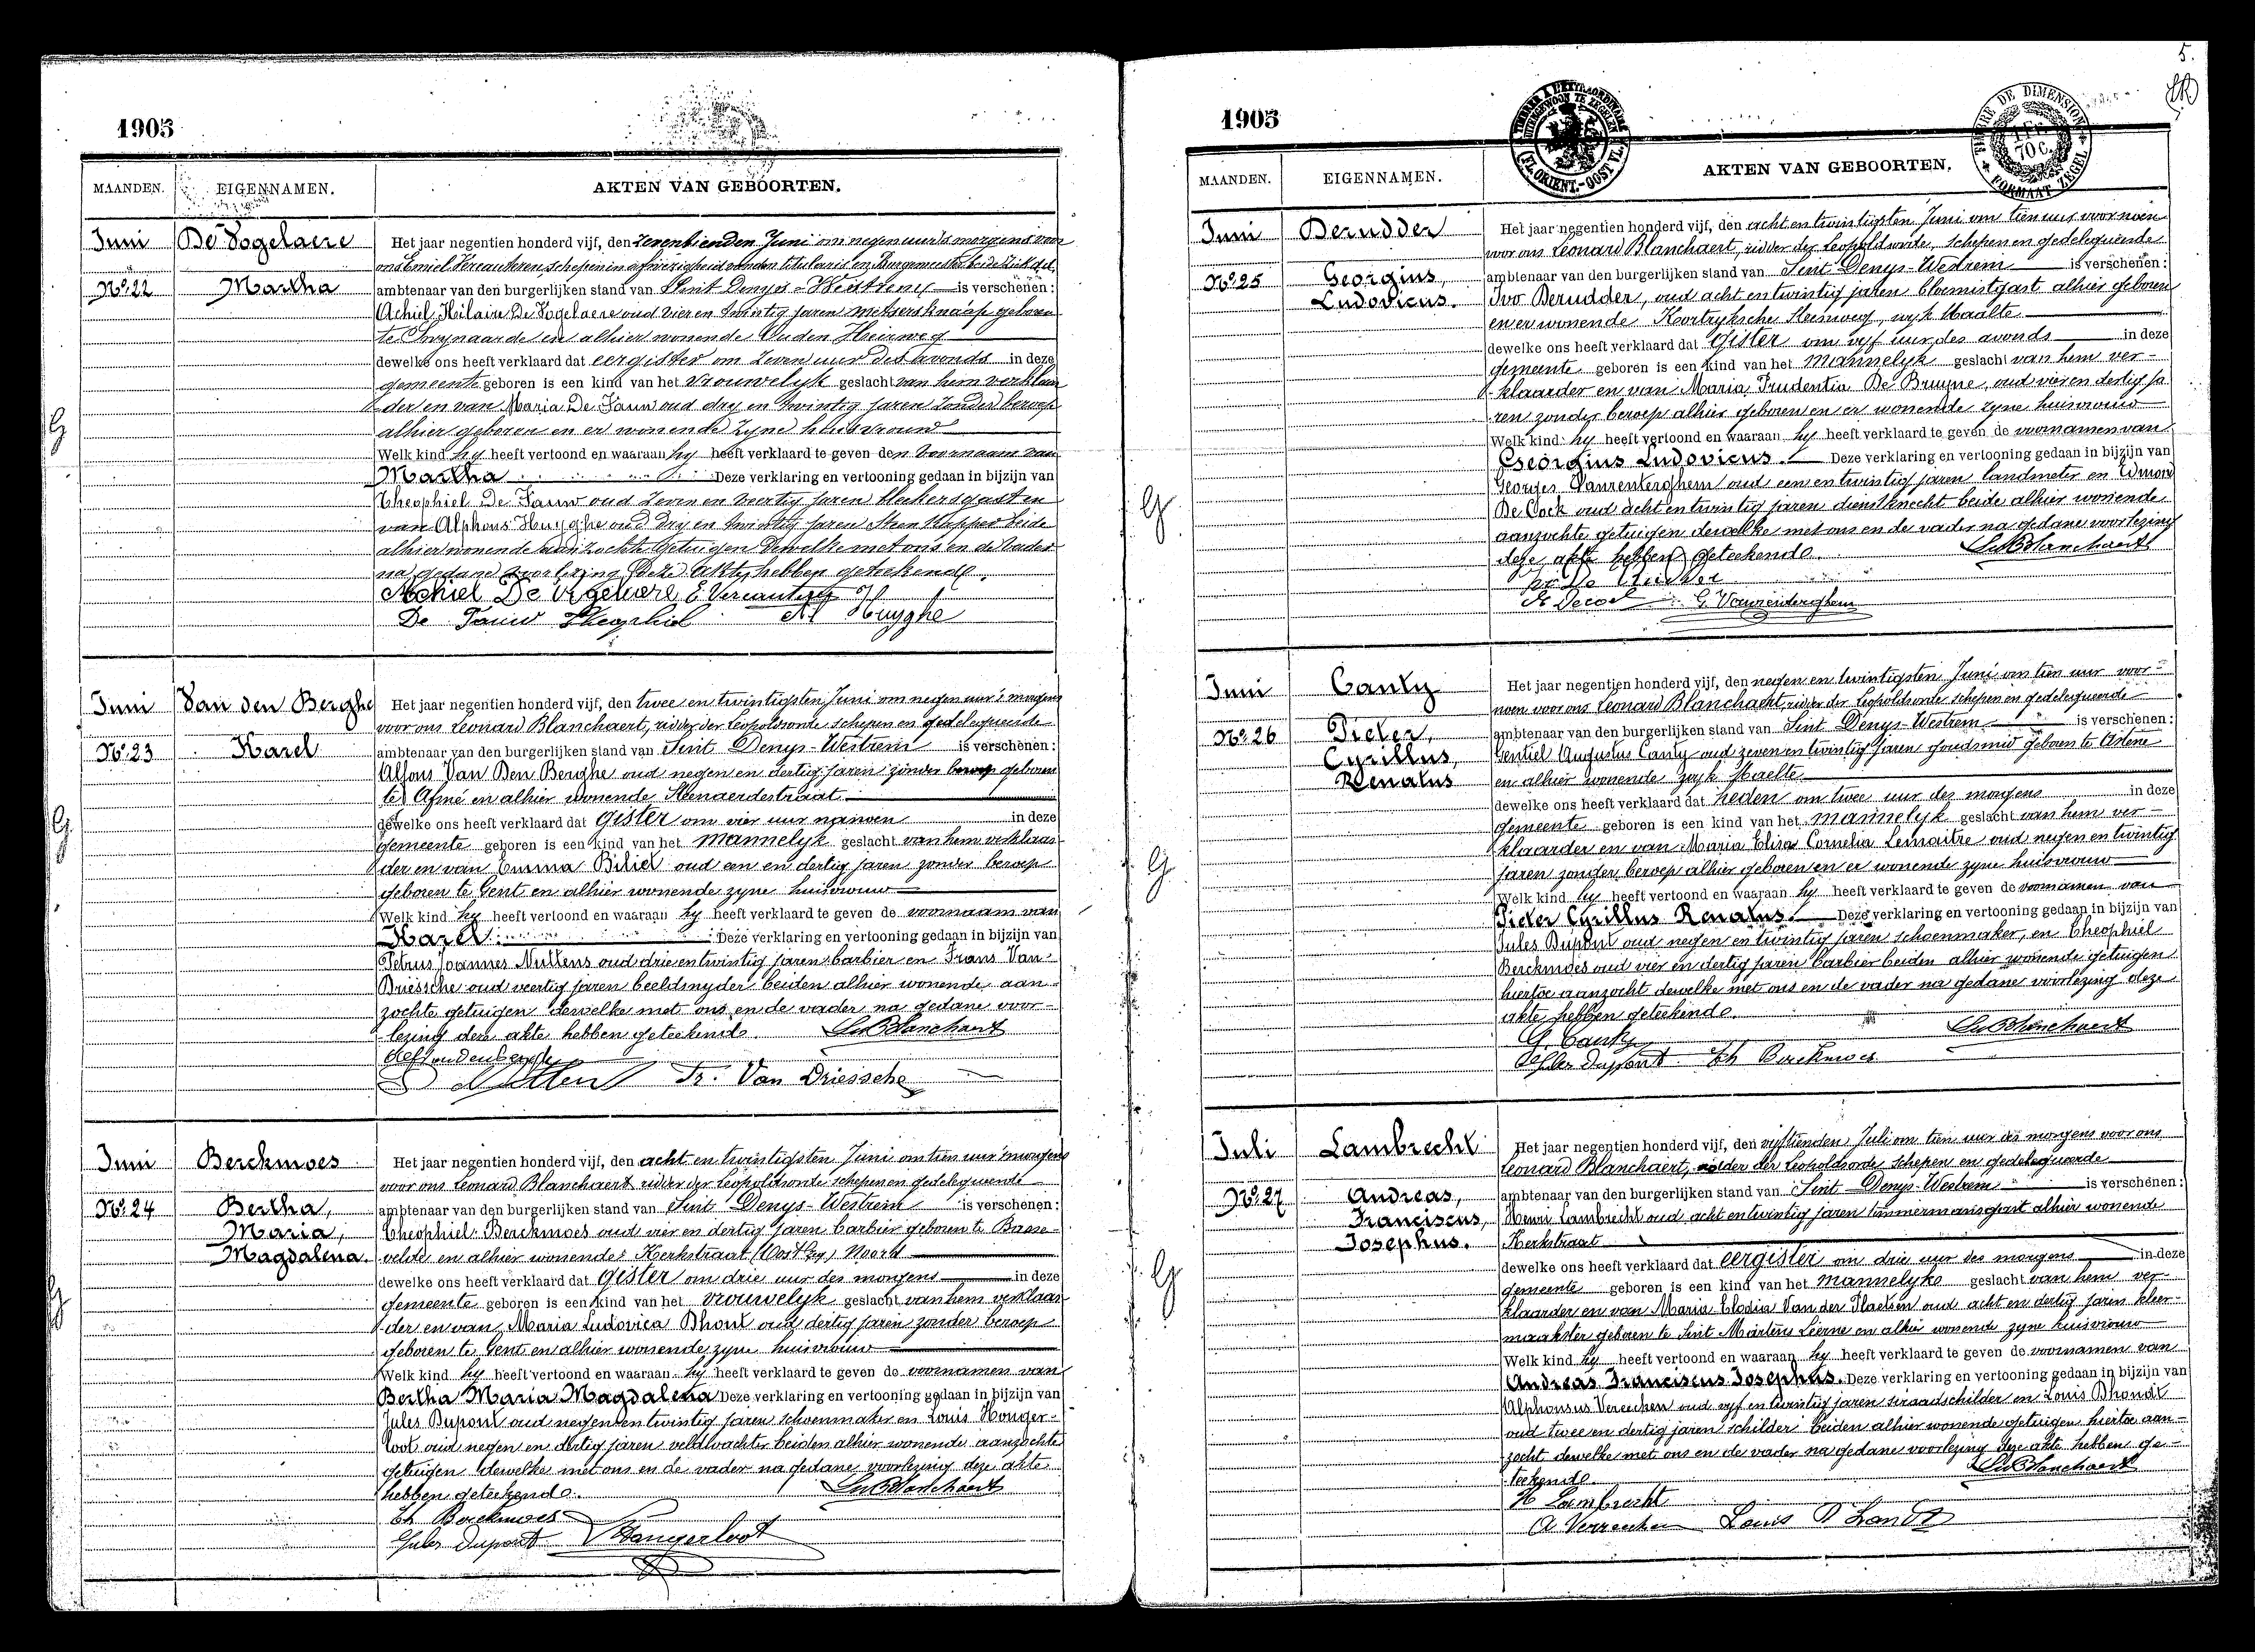 1905
MAANDEN. EIGENNAMEN. AKTEN VAN GEBOORTEN.
Juni De Vogelaere
No. 22 Martha
Het jaar negentien honderd vijf, den zeventienden Juni om negen uur 's morgens voor
ons Emiel Vercauteren, schepen in afwezigheid van den titularis en Burgemeester beide
ambtenaar van den burgerlijken stand van Sint Denys-Westrem is verschenen:
Achiel Hilaire De Vogelaere oud vier en twintig jaren metsersknaap geboren
te Swynaarde en alhier wonende Ouden Heirweg
dewelke ons heeft verklaard dat eergister om zeven uur des avonds in deze
gemeente geboren is een kind van het vrouwelyk geslacht van hem verklaar
der en van Maria De Pauw oud dry en twintig jaren zonder beroep
alhier geboren en er wonende zyne huisvrouw
Welk kind hy heeft vertoond en waaraan hy heeft verklaard te geven den voornaam van
Martha Deze verklaring en vertooning gedaan in bijzijn van
Theophiel De Pauw oud zeven en veertig jaren bleekersgast en
van Alphons Huyghe oud dry en twintig jaren steenkapper beide
alhier wonende aanzochte getuigen dewelke met ons en de vader
na gedane voorlezing deze akte hebben geteekend.
Achiel De Vogelaere E Vercauteren
De Pauw Theophiel Al Huyghe
Juni Van den Berghe
No. 23 Karel
Het jaar negentien honderd vijf, den twee en twintigsten Juni om negen uur 's morgens
voor ons Leonard Blanchaert, ridder der Leopoldsorde schepen en gedelegueerde
ambtenaar van den burgerlijken stand van Sint Denys-Westrem is verschenen:
Alfons Van Den Berghe oud negen en dertig jaren zonder beroep geboren
te Afsné en alhier wonende Steenaerdestraat
dewelke ons heeft verklaard dat gister om vier uur namoen in deze
gemeente geboren is een kind van het mannelyk geslacht van hem verklaar-
der en van Emma Biliet oud een en dertig jaren zonder beroep
geboren te Gent en alhier wonende zyne huisvrouw
Welk kind hy heeft vertoond en waaraan hy heeft verklaard te geven de voornaam van
Karel Deze verklaring en vertooning gedaan in bijzijn van
Petrus Joannes Nuttens oud drie en twintig jaren barbier en Frans Van
Driessche oud veertig jaren beeldsnyder beiden alhier wonende aan-
zochte getuigen dewelke met ons en de vader na gedane voor-
lezing deze akte hebben geteekend. LeoBlanchaert
Alf Vandenberghe
Nuttens Fr. Van Driessche
Juni Berckmoes
No. 24 Bertha,
Maria,
Magdalena.
Het jaar negentien honderd vijf, den acht en twintigsten Juni om tien uur 's morgens
voor ons Leonard Blanchaert ridder der Leopoldsorde schepen en gedelegueerde
ambtenaar van den burgerlijken stand van Sint Denys-Westrem is verschenen:
Theophiel Berckmoes oud vier en dertig jaren barbier geboren te Basse-
velde en alhier wonende Kerkstraat (Oost zy) Noord
dewelke ons heeft verklaard dat gister om drie uur des morgens in deze
gemeente geboren is een kind van het vrouwelyk geslacht van hem verklaar
der en van Maria Ludovica Dhont oud dertig jaren zonder beroep
geboren te Gent en alhier wonende zyne huisvrouw
Welk kind hy heeft vertoond en waaraan hy heeft verklaard te geven de voornamen van
Bertha Maria Magdalena Deze verklaring en vertooning gedaan in bijzijn van
Jules Dupont oud negen en twintig jaren schoenmaker en Louis Honger-
loot oud negen en dertig jaren veldwachter beiden alhier wonende aanzochte
getuigen dewelke met ons en de vader na gedane voorlezing deze akte
hebben geteekend. LeoBlanchaert
Th Berckmoes
Jules Dupont Hongerloot
5.
1905
TIMBRE A L'EXTRAORDINAIRE
BUITENGEWOON TE ZEGELEN
FL. ORIENT.-OOST VL.
TIMBRE DE DIMENSION
1 FR. 70 C.
FORMAAT ZEGEL
MAANDEN. EIGENNAMEN. AKTEN VAN GEBOORTEN.
Juni Derudder
No. 25 Georgius,
Ludovicus.
Het jaar negentien honderd vijf, den acht en twintigsten Juni om tien uur voornoen
voor ons Leonard Blanchaert, ridder der Leopoldsorde, schepen en gedelegueerde
ambtenaar van den burgerlijken stand van Sint Denys-Westrem is verschenen:
Ivo Derudder, oud acht en twintig jaren bloemistgast alhier geboren
en er wonende Kortryksche Steenweg, wyk Maalte
dewelke ons heeft verklaard dat gister om vyf uur des avonds in deze
gemeente geboren is een kind van het mannelyk geslacht van hem ver-
klaarder en van Maria Prudentia De Bruyne, oud vier en dertig ja
ren zonder beroep alhier geboren en er wonende zyne huisvrouw
Welk kind hy heeft vertoond en waaraan hy heeft verklaard te geven de voornamen van
Georgius Ludovicus. Deze verklaring en vertooning gedaan in bijzijn van
Georges Vanrenterghem oud een en twintig jaren landmeter en Edmon
De Cock oud acht en twintig jaren dienstknecht beide alhier wonende
aanzochte getuigen dewelke met ons en de vader na gedane voorlezing
deze akte hebben geteekend. LeoBlanchaert
E Decock G. Vanrenterghem
Juni Canty
No. 26 Pieter,
Cyrillus,
Renatus
Het jaar negentien honderd vijf, den negen en twintigsten Juni om tien uur voor-
noen voor ons Leonard Blanchaert, ridder der Leopoldsorde schepen en gedelegueerde
ambtenaar van den burgerlijken stand van Sint Denys-Westrem is verschenen:
Gentiel Augustus Canty oud zeven en twintig jaren goudsmid geboren te Astene
en alhier wonende wyk Maelte
dewelke ons heeft verklaard dat heden om twee uur des morgens in deze
gemeente geboren is een kind van het mannelyk geslacht van hem ver-
klaarder en van Maria Elisa Cornelia Lemaitre oud negen en twintig
jaren zonder beroep alhier geboren en er wonende zyne huisvrouw
Welk kind hy heeft vertoond en waaraan hy heeft verklaard te geven de voornamen van
Pieter Cyrillus Renatus. Deze verklaring en vertooning gedaan in bijzijn van
Jules Dupont oud negen en twintig jaren schoenmaker, en Theophiel
Berckmoes oud vier en dertig jaren barbier beiden alhier wonende getuigen
hiertoe aanzocht dewelke met ons en de vader na gedane voorlezing deze
akte hebben geteekend. LeoBlanchaert
G. Canty
Jules Dupont Th Berckmoes
Juli Lambrecht
No. 27 Andreas,
Franciscus,
Josephus.
Het jaar negentien honderd vijf, den vyftienden Juli om tien uur des morgens voor ons
Leonard Blanchaert, ridder der Leopoldsorde schepen en gedelegueerde
ambtenaar van den burgerlijken stand van Sint Denys-Westrem is verschenen:
Henri Lambrecht oud acht en twintig jaren timmermansgast alhier wonende
Kerkstraat
dewelke ons heeft verklaard dat eergister om drie uur des morgens in deze
gemeente geboren is een kind van het mannelyke geslacht van hem ver-
klaarder en van Maria Elodia Van der Plaetsen oud acht en dertig jaren kleer-
maakster geboren te Sint Martens Leerne en alhier wonende zyne huisvrouw
Welk kind hy heeft vertoond en waaraan hy heeft verklaard te geven de voornamen van
Andreas Franciscus Josephus. Deze verklaring en vertooning gedaan in bijzijn van
Alphonsus Vereecken oud vyf en twintig jaren sieraadschilder en Louis Dhondt
oud twee en dertig jaren schilder beiden alhier wonende getuigen hiertoe aan-
zocht dewelke met ons en de vader na gedane voorlezing deze akte hebben ge-
teekend. LeoBlanchaert
H Lambrecht
A Vereecken Louis D'hondt